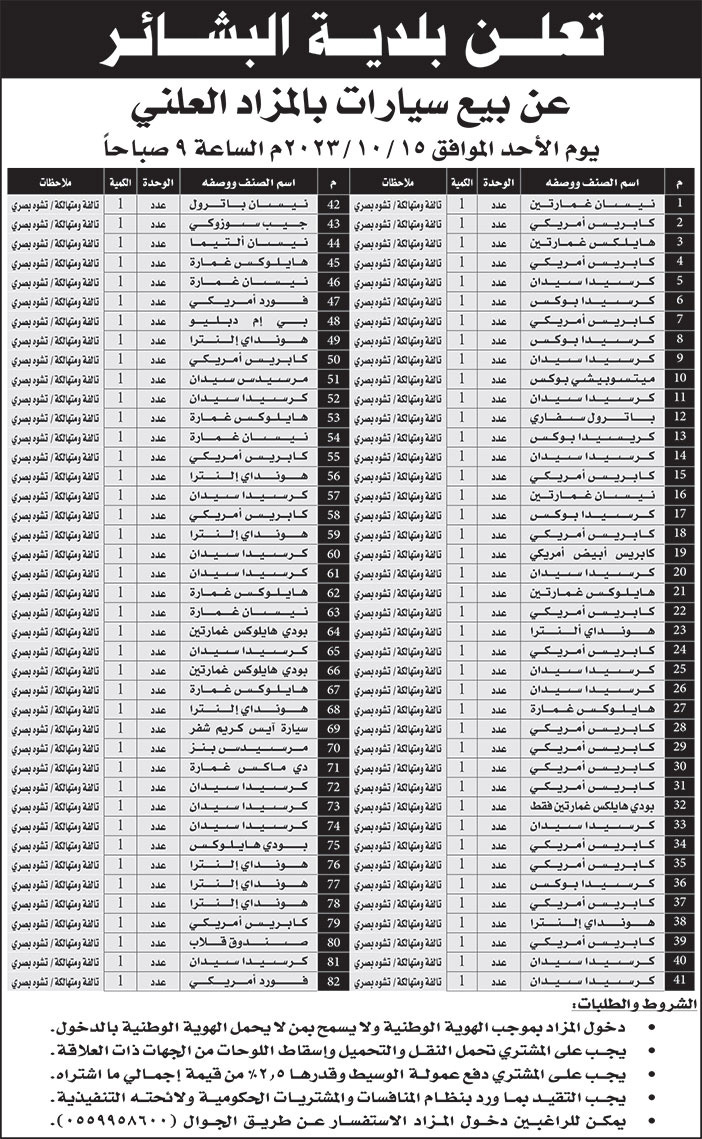 تعلن بلدية البشائر
عن بيع سيارات بالمزاد العلني
يوم الأحد الموافق ٢٠٢٣/١٠/١٥م الساعة ٩ صباحاً
م اسم الصنف ووصفه الوحدة الكمية ملاحظات م اسم الصنف ووصفه الوحدة الكمية ملاحظات
1 نيسان غمارتين عدد 1 تالفة ومتهالكة / تشوه بصري 42 نيسان باترول عدد 1 تالفة ومتهالكة / تشوه بصري
2 كابريس أمريكي عدد 1 تالفة ومتهالكة / تشوه بصري 43 جيب سوزوكي عدد 1 تالفة ومتهالكة / تشوه بصري
3 هايلكس غمارتين عدد 1 تالفة ومتهالكة / تشوه بصري 44 نيسان ألتيما عدد 1 تالفة ومتهالكة / تشوه بصري
4 كابريس أمريكي عدد 1 تالفة ومتهالكة / تشوه بصري 45 هايلوكس غمارة عدد 1 تالفة ومتهالكة / تشوه بصري
5 كرسيدا سيدان عدد 1 تالفة ومتهالكة / تشوه بصري 46 نيسان غمارة عدد 1 تالفة ومتهالكة / تشوه بصري
6 كرسيدا بوكس عدد 1 تالفة ومتهالكة / تشوه بصري 47 فورد أمريكي عدد 1 تالفة ومتهالكة / تشوه بصري
7 كابريس أمريكي عدد 1 تالفة ومتهالكة / تشوه بصري 48 بي إم دبليو عدد 1 تالفة ومتهالكة / تشوه بصري
8 كرسيدا بوكس عدد 1 تالفة ومتهالكة / تشوه بصري 49 هونداي إلنترا عدد 1 تالفة ومتهالكة / تشوه بصري
9 كرسيدا سيدان عدد 1 تالفة ومتهالكة / تشوه بصري 50 كابريس أمريكي عدد 1 تالفة ومتهالكة / تشوه بصري
10 ميتسوبيشي بوكس عدد 1 تالفة ومتهالكة / تشوه بصري 51 مرسيدس سيدان عدد 1 تالفة ومتهالكة / تشوه بصري
11 كرسيدا سيدان عدد 1 تالفة ومتهالكة / تشوه بصري 52 كرسيدا سيدان عدد 1 تالفة ومتهالكة / تشوه بصري
12 باترول سفاري عدد 1 تالفة ومتهالكة / تشوه بصري 53 هايلوكس غمارة عدد 1 تالفة ومتهالكة / تشوه بصري
13 كريسيدا بوكس عدد 1 تالفة ومتهالكة / تشوه بصري 54 نيسان غمارة عدد 1 تالفة ومتهالكة / تشوه بصري
14 كرسيدا سيدان عدد 1 تالفة ومتهالكة / تشوه بصري 55 كابريس أمريكي عدد 1 تالفة ومتهالكة / تشوه بصري
15 كابريس أمريكي عدد 1 تالفة ومتهالكة / تشوه بصري 56 هونداي إلنترا عدد 1 تالفة ومتهالكة / تشوه بصري
16 نيسان غمارتين عدد 1 تالفة ومتهالكة / تشوه بصري 57 كرسيدا سيدان عدد 1 تالفة ومتهالكة / تشوه بصري
17 كرسيدا بوكس عدد 1 تالفة ومتهالكة / تشوه بصري 58 كابريس أمريكي عدد 1 تالفة ومتهالكة / تشوه بصري
18 كابريس أمريكي عدد 1 تالفة ومتهالكة / تشوه بصري 59 هونداي إلنترا عدد 1 تالفة ومتهالكة / تشوه بصري
19 كابريس أبيض أمريكي عدد 1 تالفة ومتهالكة / تشوه بصري 60 كرسيدا سيدان عدد 1 تالفة ومتهالكة / تشوه بصري
20 كرسيدا سيدان عدد 1 تالفة ومتهالكة / تشوه بصري 61 كرسيدا سيدان عدد 1 تالفة ومتهالكة / تشوه بصري
21 هايلوكس غمارتين عدد 1 تالفة ومتهالكة / تشوه بصري 62 هايلوكس غمارة عدد 1 تالفة ومتهالكة / تشوه بصري
22 كابريس أمريكي عدد 1 تالفة ومتهالكة / تشوه بصري 63 نيسان غمارة عدد 1 تالفة ومتهالكة / تشوه بصري
23 هونداي ألنترا عدد 1 تالفة ومتهالكة / تشوه بصري 64 بودي هايلوكس غمارتين عدد 1 تالفة ومتهالكة / تشوه بصري
24 كابريس أمريكي عدد 1 تالفة ومتهالكة / تشوه بصري 65 كرسيدا سيدان عدد 1 تالفة ومتهالكة / تشوه بصري
25 كرسيدا سيدان عدد 1 تالفة ومتهالكة / تشوه بصري 66 بودي هايلوكس غمارتين عدد 1 تالفة ومتهالكة / تشوه بصري
26 كرسيدا سيدان عدد 1 تالفة ومتهالكة / تشوه بصري 67 هايلوكس غمارة عدد 1 تالفة ومتهالكة / تشوه بصري
27 هايلوكس غمارة عدد 1 تالفة ومتهالكة / تشوه بصري 68 هونداي إلنترا عدد 1 تالفة ومتهالكة / تشوه بصري
28 كابريس أمريكي عدد 1 تالفة ومتهالكة / تشوه بصري 69 سيارة آيس كريم شفر عدد 1 تالفة ومتهالكة / تشوه بصري
29 كابريس أمريكي عدد 1 تالفة ومتهالكة / تشوه بصري 70 مرسيدس بنز عدد 1 تالفة ومتهالكة / تشوه بصري
30 كابريس أمريكي عدد 1 تالفة ومتهالكة / تشوه بصري 71 دي ماكس غمارة عدد 1 تالفة ومتهالكة / تشوه بصري
31 كابريس أمريكي عدد 1 تالفة ومتهالكة / تشوه بصري 72 كرسيدا سيدان عدد 1 تالفة ومتهالكة / تشوه بصري
32 بودي هايلكس غمارتين فقط عدد 1 تالفة ومتهالكة / تشوه بصري 73 كرسيدا سيدان عدد 1 تالفة ومتهالكة / تشوه بصري
33 كرسيدا سيدان عدد 1 تالفة ومتهالكة / تشوه بصري 74 كرسيدا سيدان عدد 1 تالفة ومتهالكة / تشوه بصري
34 كابريس أمريكي عدد 1 تالفة ومتهالكة / تشوه بصري 75 بودي هايلوكس عدد 1 تالفة ومتهالكة / تشوه بصري
35 كابريس أمريكي عدد 1 تالفة ومتهالكة / تشوه بصري 76 هونداي إلنترا عدد 1 تالفة ومتهالكة / تشوه بصري
36 كرسيدا بوكس عدد 1 تالفة ومتهالكة / تشوه بصري 77 هونداي إلنترا عدد 1 تالفة ومتهالكة / تشوه بصري
37 كابريس أمريكي عدد 1 تالفة ومتهالكة / تشوه بصري 78 هونداي إلنترا عدد 1 تالفة ومتهالكة / تشوه بصري
38 هونداي إلنترا عدد 1 تالفة ومتهالكة / تشوه بصري 79 كابريس أمريكي عدد 1 تالفة ومتهالكة / تشوه بصري
39 كابريس أمريكي عدد 1 تالفة ومتهالكة / تشوه بصري 80 صندوق قلاب عدد 1 تالفة ومتهالكة / تشوه بصري
40 كرسيدا سيدان عدد 1 تالفة ومتهالكة / تشوه بصري 81 كرسيدا سيدان عدد 1 تالفة ومتهالكة / تشوه بصري
41 كرسيدا سيدان عدد 1 تالفة ومتهالكة / تشوه بصري 82 فورد أمريكي عدد 1 تالفة ومتهالكة / تشوه بصري
الشروط والطلبات:
• دخول المزاد بموجب الهوية الوطنية ولا يسمح بمن لا يحمل الهوية الوطنية بالدخول.
• يجب على المشتري تحمل النقل والتحميل وإسقاط اللوحات من الجهات ذات العلاقة.
• يجب على المشتري دفع عمولة الوسيط وقدرها ٢,٥٪ من قيمة إجمالي ما اشتراه.
• يجب التقيد بما ورد بنظام المنافسات والمشتريات الحكومية ولائحته التنفيذية.
• يمكن للراغبين دخول المزاد الاستفسار عن طريق الجوال (٠٥٥٩٩٥٨٦٠٠).